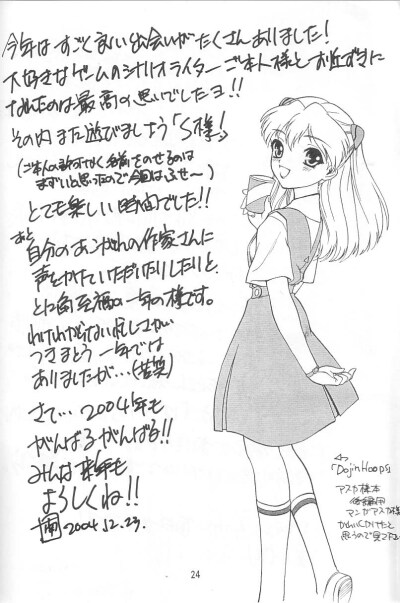 今年はすごくよい出会いがたくさんありました!
大好きなゲームのシナリオライターご本人様とお近ずきに
なれたのは最高の思いでしたヨ!!
その内また遊びましょう「S様」
(ご本人の許すなく名前をのせるのは
まずいと思ったので今回はふせ〜)
とても楽しい時間でした!!
あと
自分のあこがれの作家さんに
声をかけていただいたりしたりと、
とにかく至福の一年の様です。
わけわからない忙しさが
つきまとう一年では
ありましたが…(苦笑)
さて…2004年も
がんばるがんばる!!
みんな来年も
よろしくね!!
2004.12.23.
「DojinHoops」
アスカ様本
マンガアスカ様
かわいくかけたと
思うので見て下さい
24